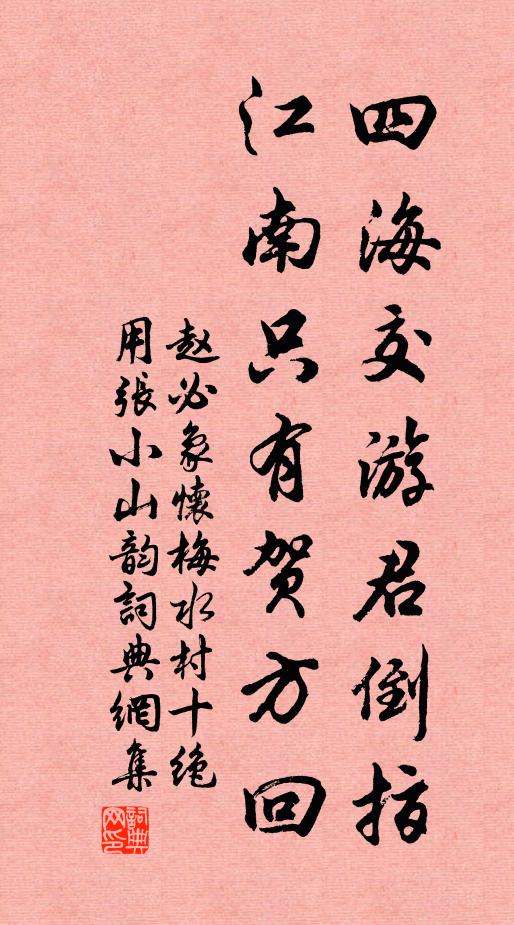 四海交游君倒指
江南只有贺方回
赵必象懷梅水村十绝
用張小山韵詞典網集
詞典
网印